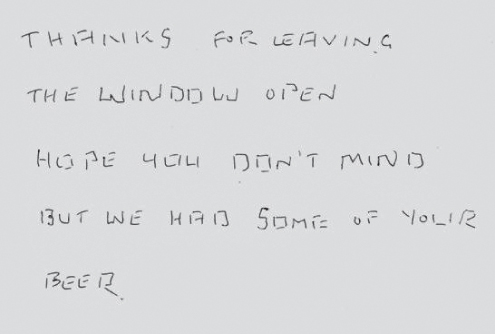 THANKS FOR LEAVING
THE WINDOW OPEN
HOPE YOU DON'T MIND
BUT WE HAD SOME OF YOUR
BEER.